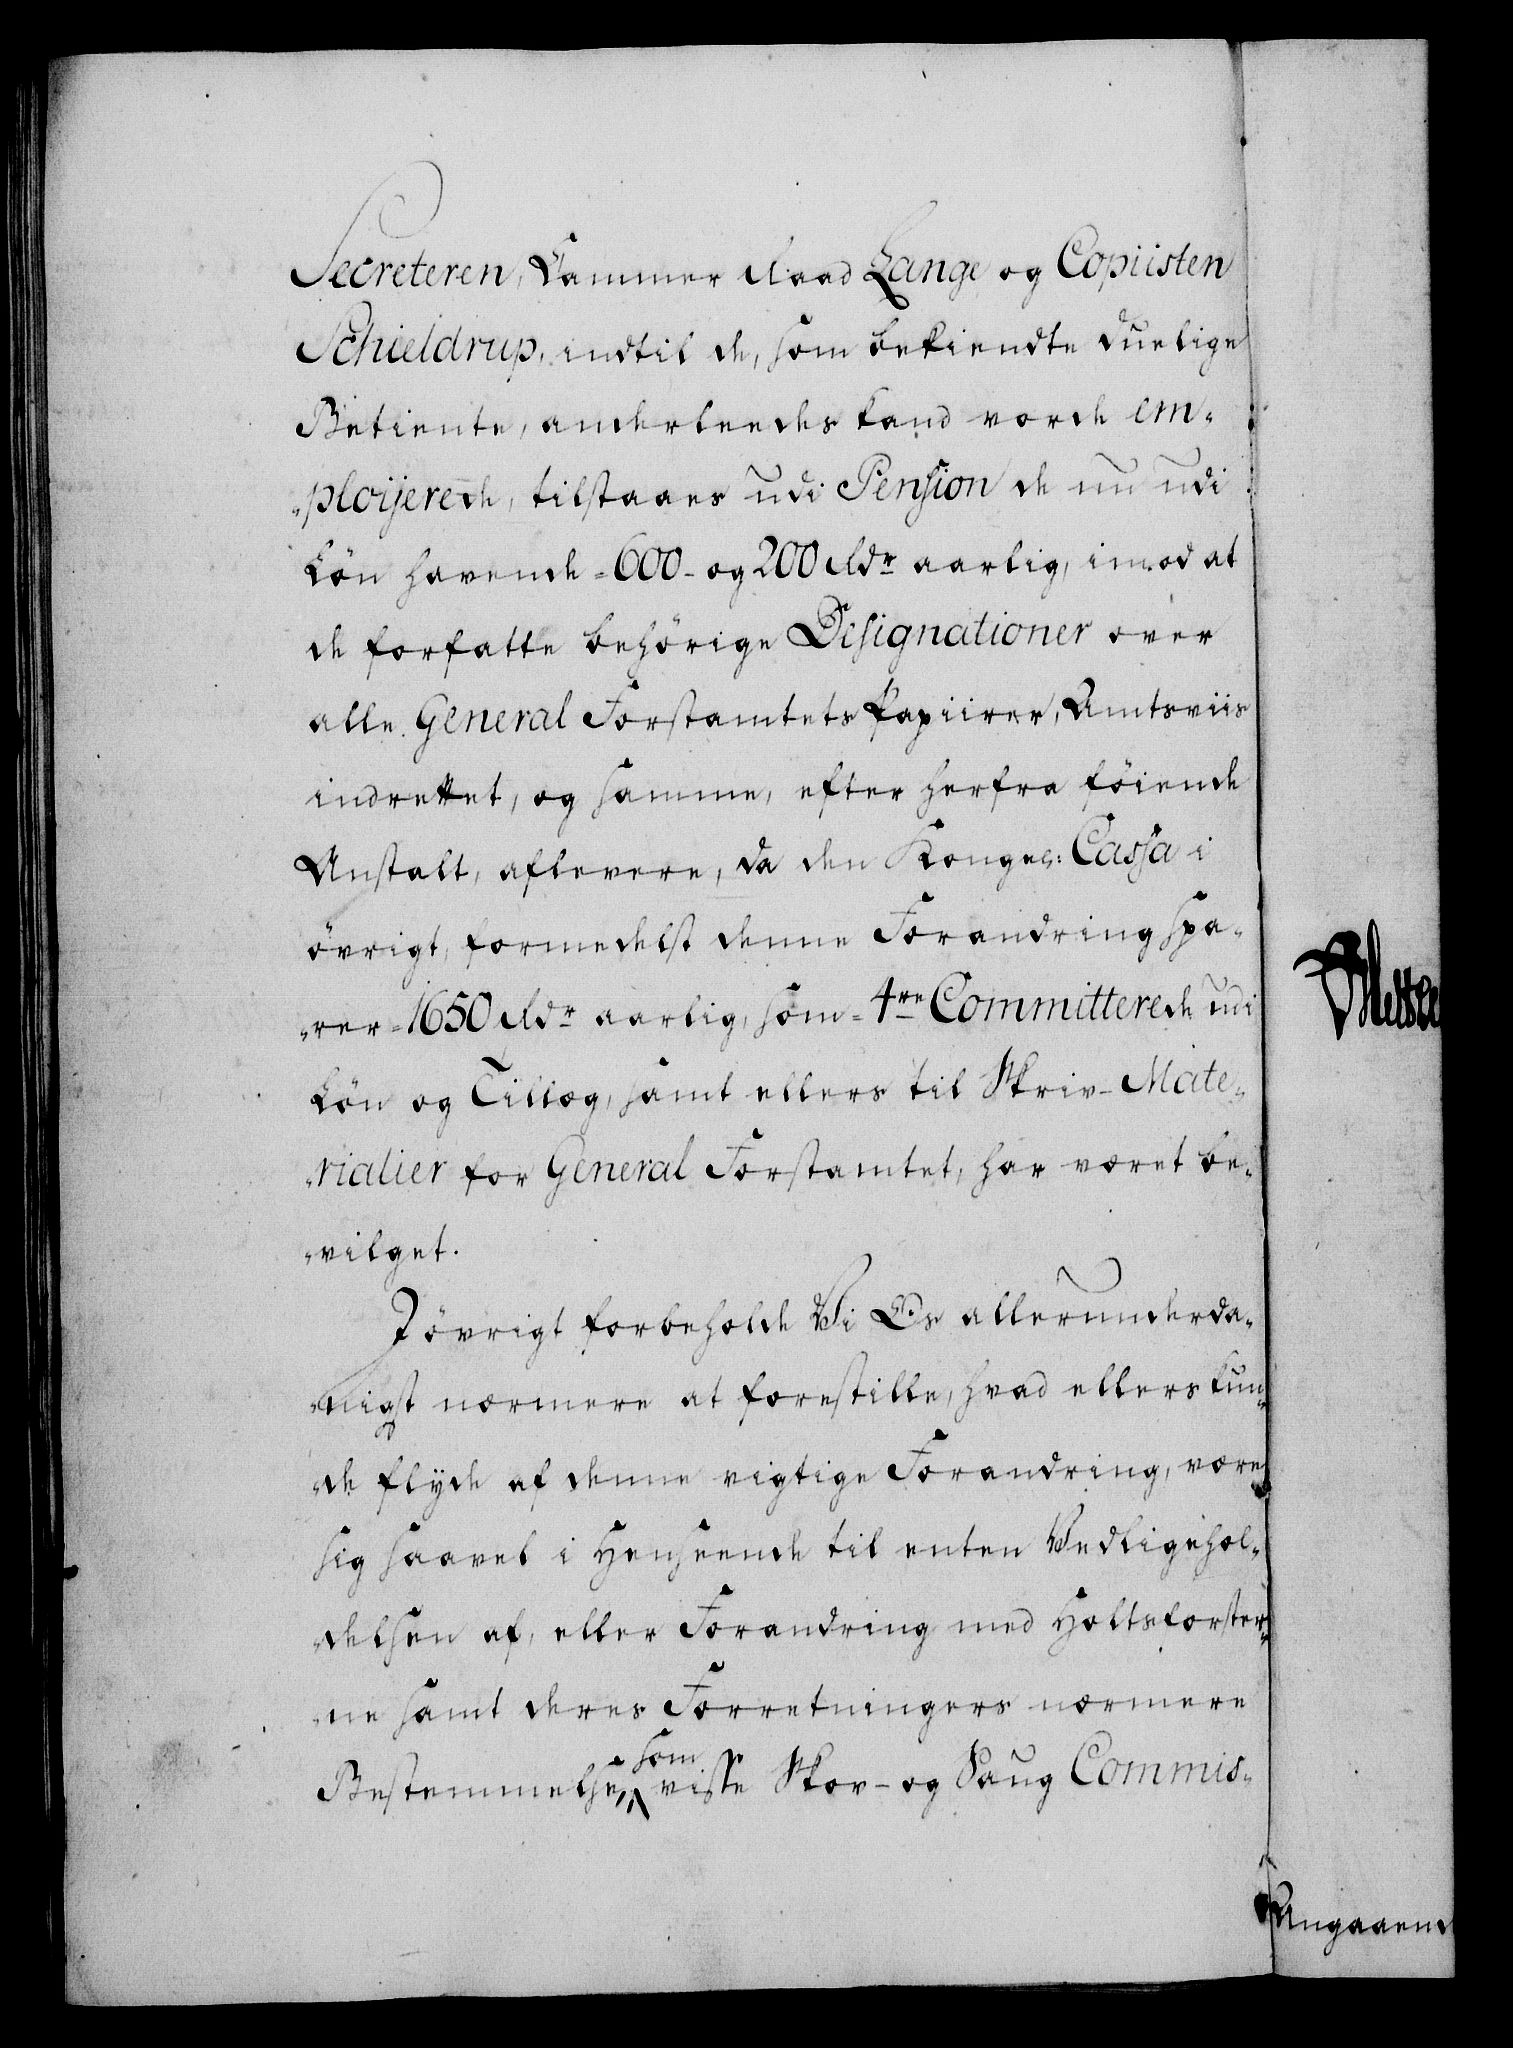 Secreteren, Cammer Raad Lange og Copiisten
Schieldrup, indtil de, som bekiendte duelige
Betiente, anderleedes kand vorde em-
ploijerede, tilstaaes udi Pension de nu udi
Løn havende 600 og 200 Rdr aarlig, imod at
de forfatte behørige Designationer over
alle General Forstamtets Papiirer, Amtsviis
indrettet, og samme, efter herfra føiende
Anstalt, aflevere, da den Kongel: Cassa i
øvrigt, formedelst denne Forandring spa-
rer 1650 Rdr aarlig, som 4re Committerede udi
Løn og Tillæg, samt ellers til Skriv-Mate-
rialier for General Forstamtet, har været be-
vilget.
I øvrigt forbeholde Vi Os allerunderda-
nigst nærmere at forestille, hvad ellers kun-
de flÿde af denne vigtige Forandring, være
sig saavel i Henseende til enten Vedligehol-
delsen af, eller Forandring med Holtsforster-
ne samt deres Forretningers nærmere
Bestemmelse, som visse Skov- og Saug Commis-
Angaaend